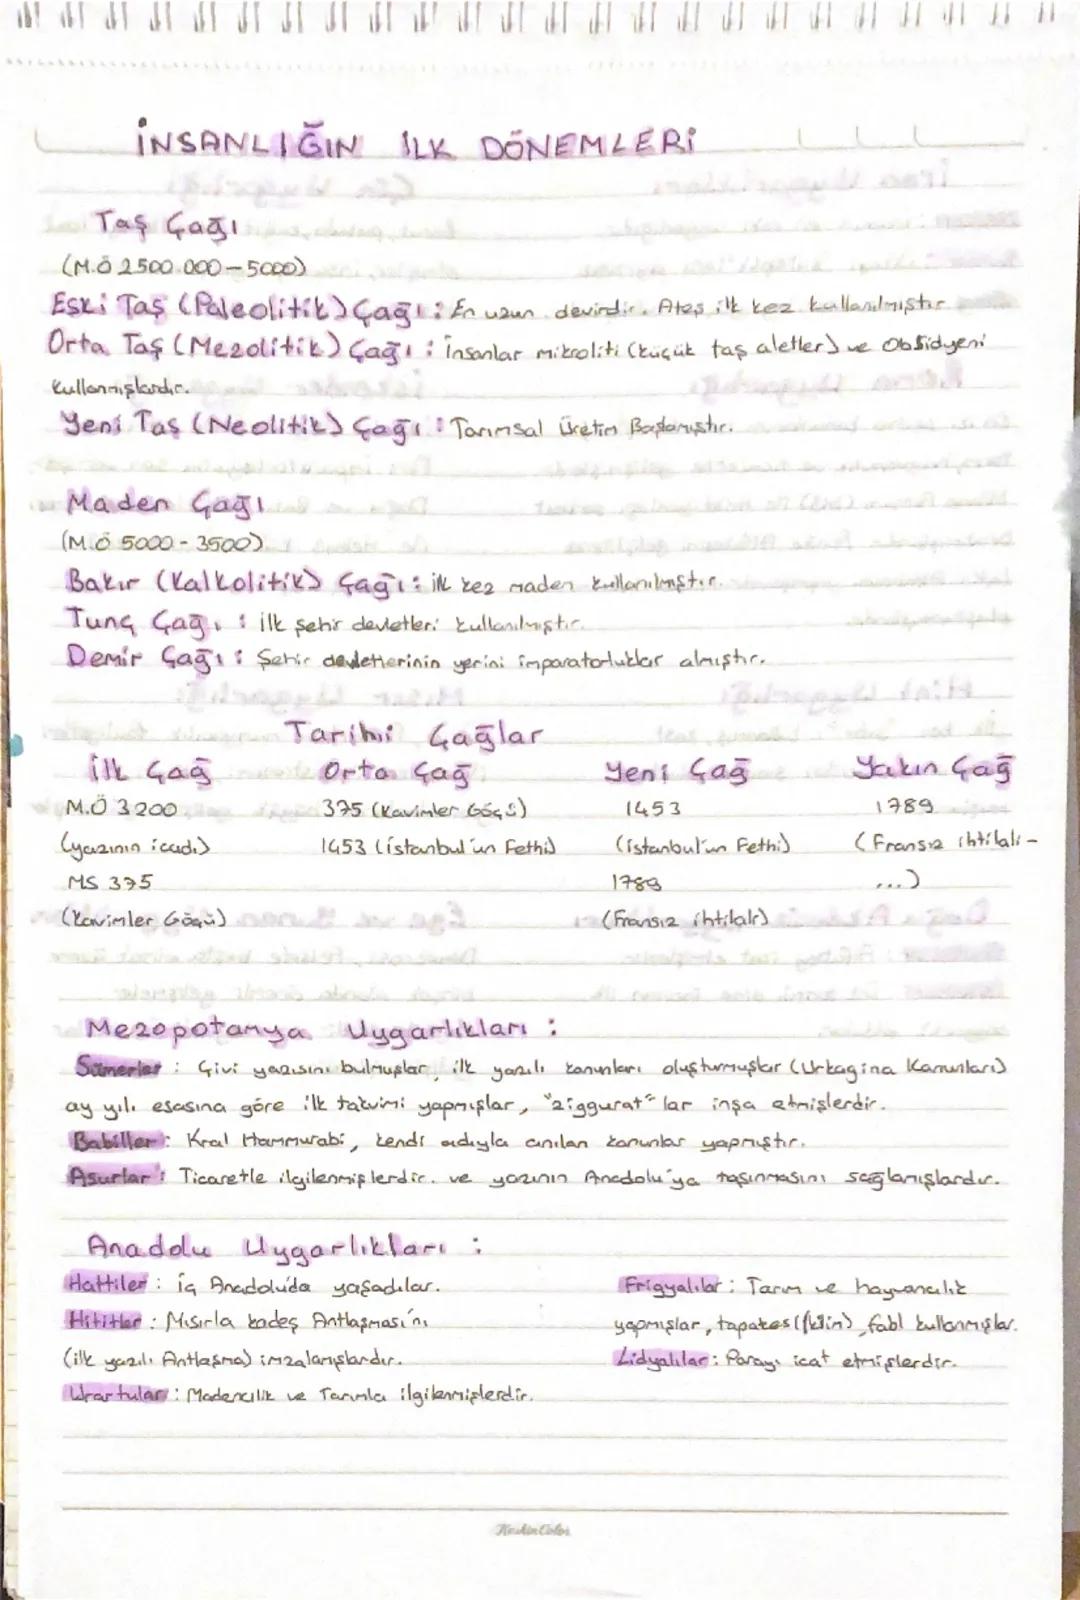 İNSANLIĞIN İLK DÖNEMLERİ
Taş Çağı
(M.Ö 2500.000-5000)
Eski Taş (Paleolitik) Çağı: En uzun devirdir. Ateş ilk kez kullanılmıştır
Orta Taş (Mezolitik) Çağı: İnsanlar mikroliti (küçük taş aletler) ve Obsidyeni
kullanmışlardır.
Yeni Taş (Neolitik) Çağı: Tarımsal Üretim Başlamıştır.
Maden Çağı
(M.Ö 5000-3500)
Bakır (Kalkolitik) Çağı: ilk kez maden kullanılmıştır.
Tunç Çağı: ilk şehir devletleri kullanılmıştır.
Demir Çağı: Şehir devletlerinin yerini imparatorluklar almıştır.
Tarihi Çağlar
İlk Çağ Orta Çağ Yeni Çağ Yakın Çağ
M.Ö 3200 375 (Kavimler Göçü) 1453 1789
(yazının icadı) 1453 (İstanbul'un Fethi) (İstanbul'un Fethi) (Fransız ihtilali-
MS 375 1789 ...)
(Kavimler Göçü) (Fransız ihtilalı)
Mezopotamya Uygarlıkları:
Sümerler: Çivi yazısını bulmuşlar, ilk yazılı kanunları oluşturmuşlar (Urkagina Kanunları)
ay yılı esasına göre ilk takvimi yapmışlar, "ziggurat" lar inşa etmişlerdir.
Babiller: Kral Hammurabi, kendi adıyla anılan kanunlar yapmıştır.
Asurlar: Ticaretle ilgilenmişlerdir. ve yazının Anadolu'ya taşınmasını sağlamışlardır.
Anadolu Uygarlıkları:
Hattiler: iç Anadolu'da yaşadılar. Frigyalılar: Tarım ve hayvancılık
Hititler: Mısırla kadeş Antlaşması'nı yapmışlar, tapates (kilim), fabl kullanmışlar.
(ilk yazılı Antlaşma) imzalamışlardır. Lidyalılar: Parayı icat etmişlerdir.
Urartular: Madencilik ve Tarımla ilgilenmişlerdir.
KeskinColor